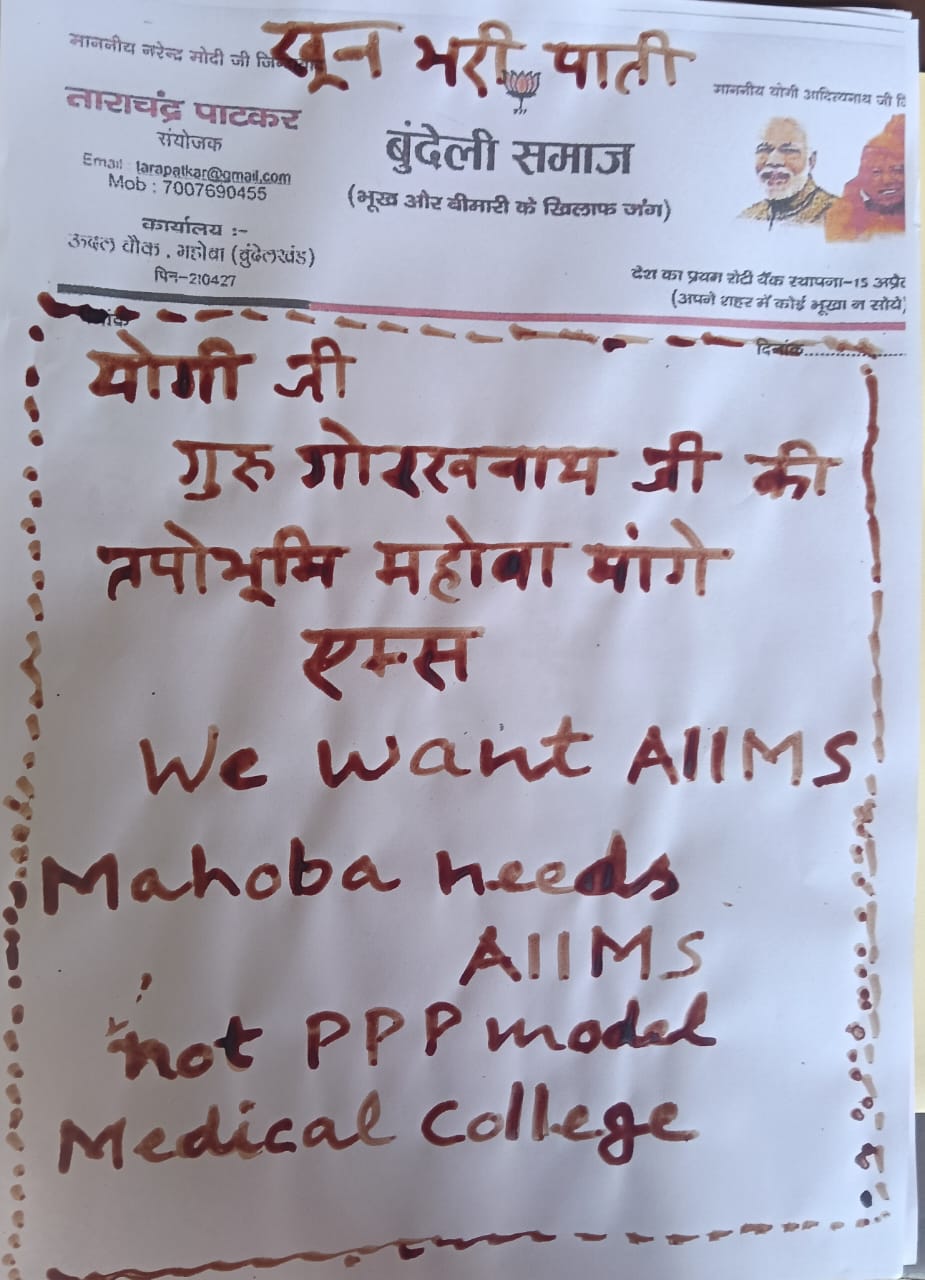 खून भरी पाती
माननीय नरेन्द्र मोदी जी
माननीय योगी आदित्यनाथ जी
ताराचंद्र पाटकर
संयोजक
Email : tarapatkar@gmail.com
Mob : 7007690455
कार्यालय :-
ऊदल चौक , महोबा (बुंदेलखंड)
पिन-210427
बुंदेली समाज
(भूख और बीमारी के खिलाफ जंग)
देश का प्रथम रोटी बैंक स्थापना-15
(अपने शहर में कोई भूखा न सोये)
दिनांक..................
योगी जी
गुरु गोरखनाथ जी की
तपोभूमि महोबा मांगे
एम्स
We want AIIMS
Mahoba needs
AIIMS
not PPP model
Medical College